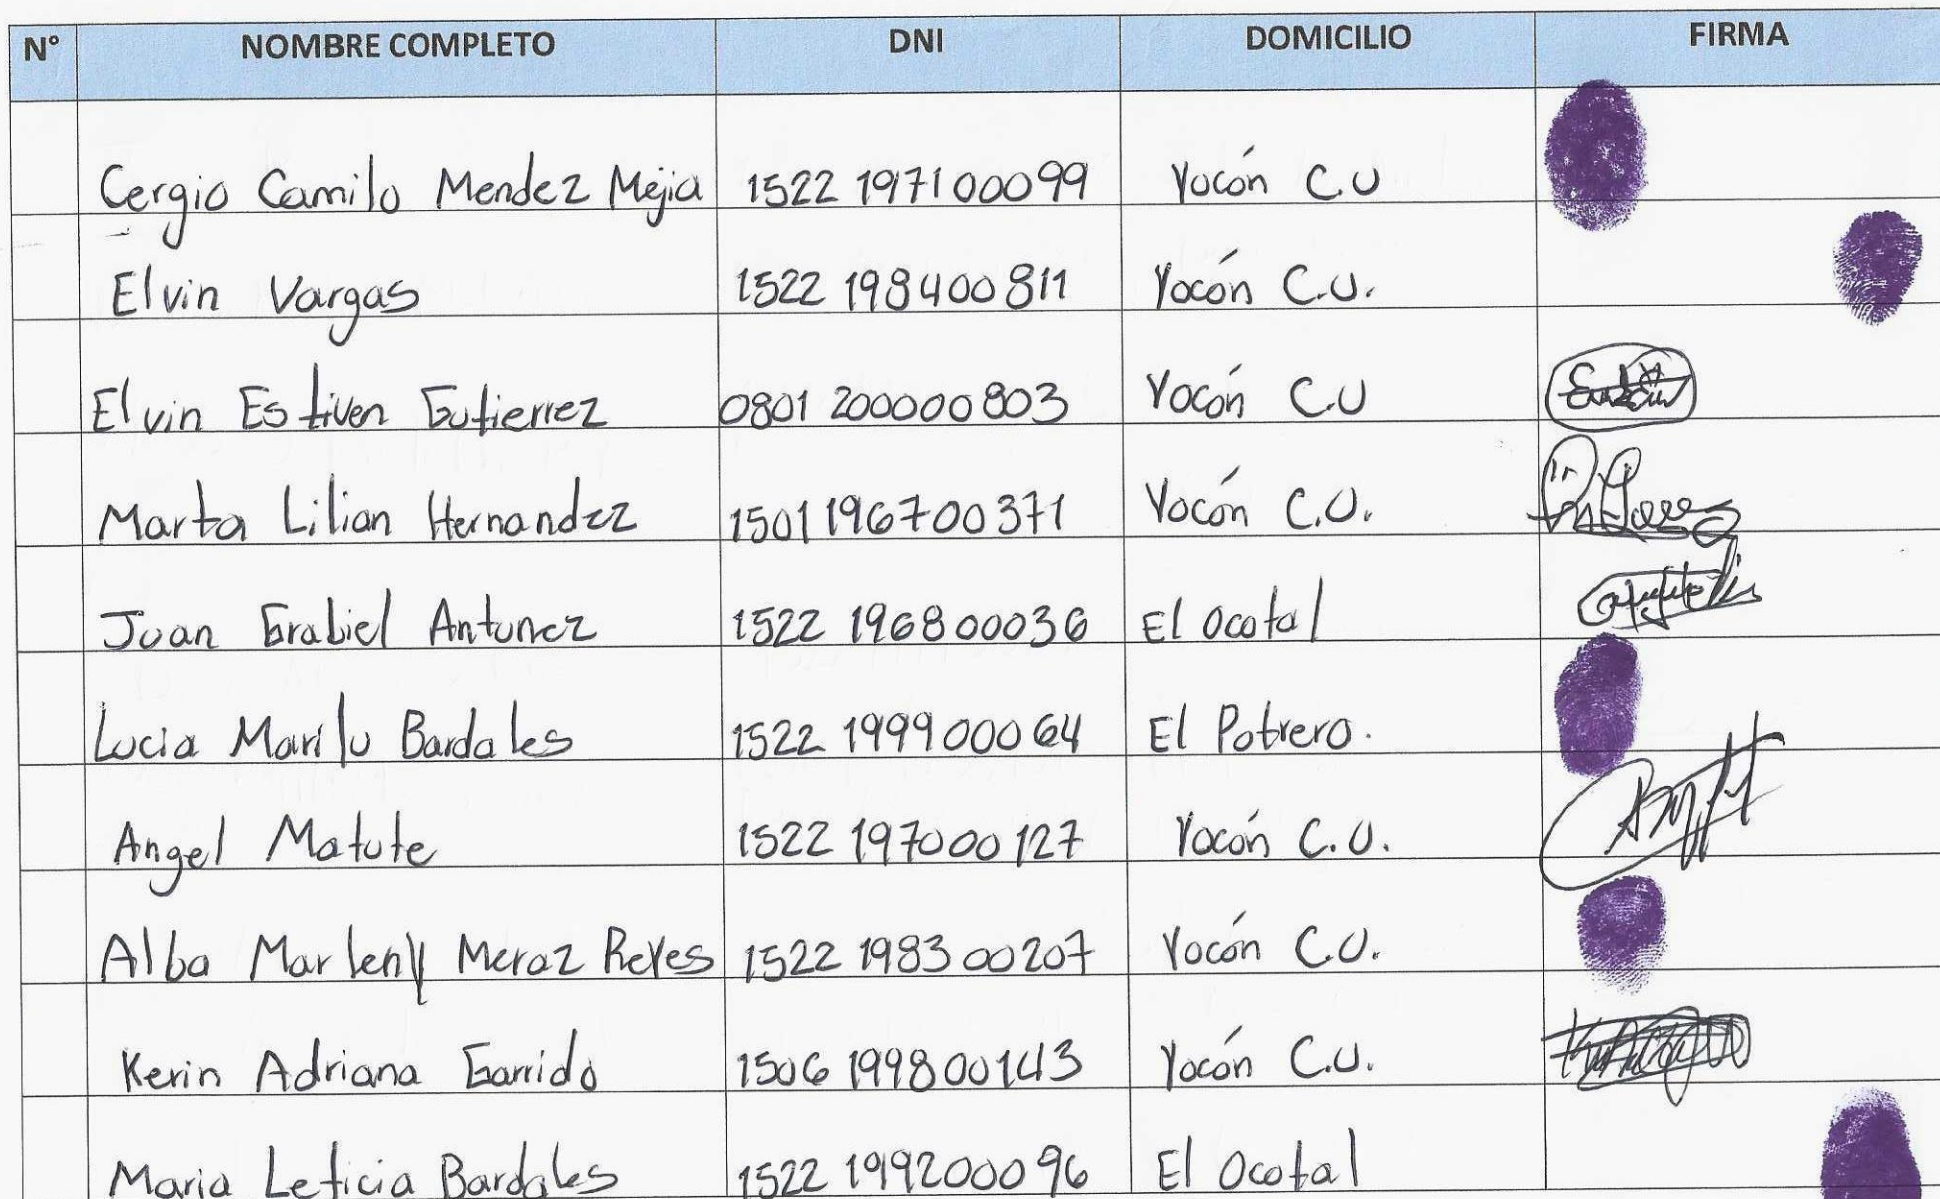 N° NOMBRE COMPLETO DNI DOMICILIO FIRMA
Cergio Camilo Mendez Mejia 1522 1971 00099 Yocón C.U
Elvin Vargas 1522 1984 00811 Yocón C.U.
Elvin Estiven Gutierrez 0801 2000 00803 Yocón C.U
Marta Lilian Hernandez 1501 1967 00371 Yocón C.U.
Juan Grabiel Antunez 1522 1968 00036 El Ocotal
Lucia Marilu Bardales 1522 1999 00064 El Potrero.
Angel Matute 1522 1970 00127 Yocón C.U.
Alba Marleny Meraz Reyes 1522 1983 00207 Yocón C.U.
Kerin Adriana Garrido 1506 1998 00143 Yocón C.U.
Maria Leticia Bardales 1522 1992 00096 El Ocotal